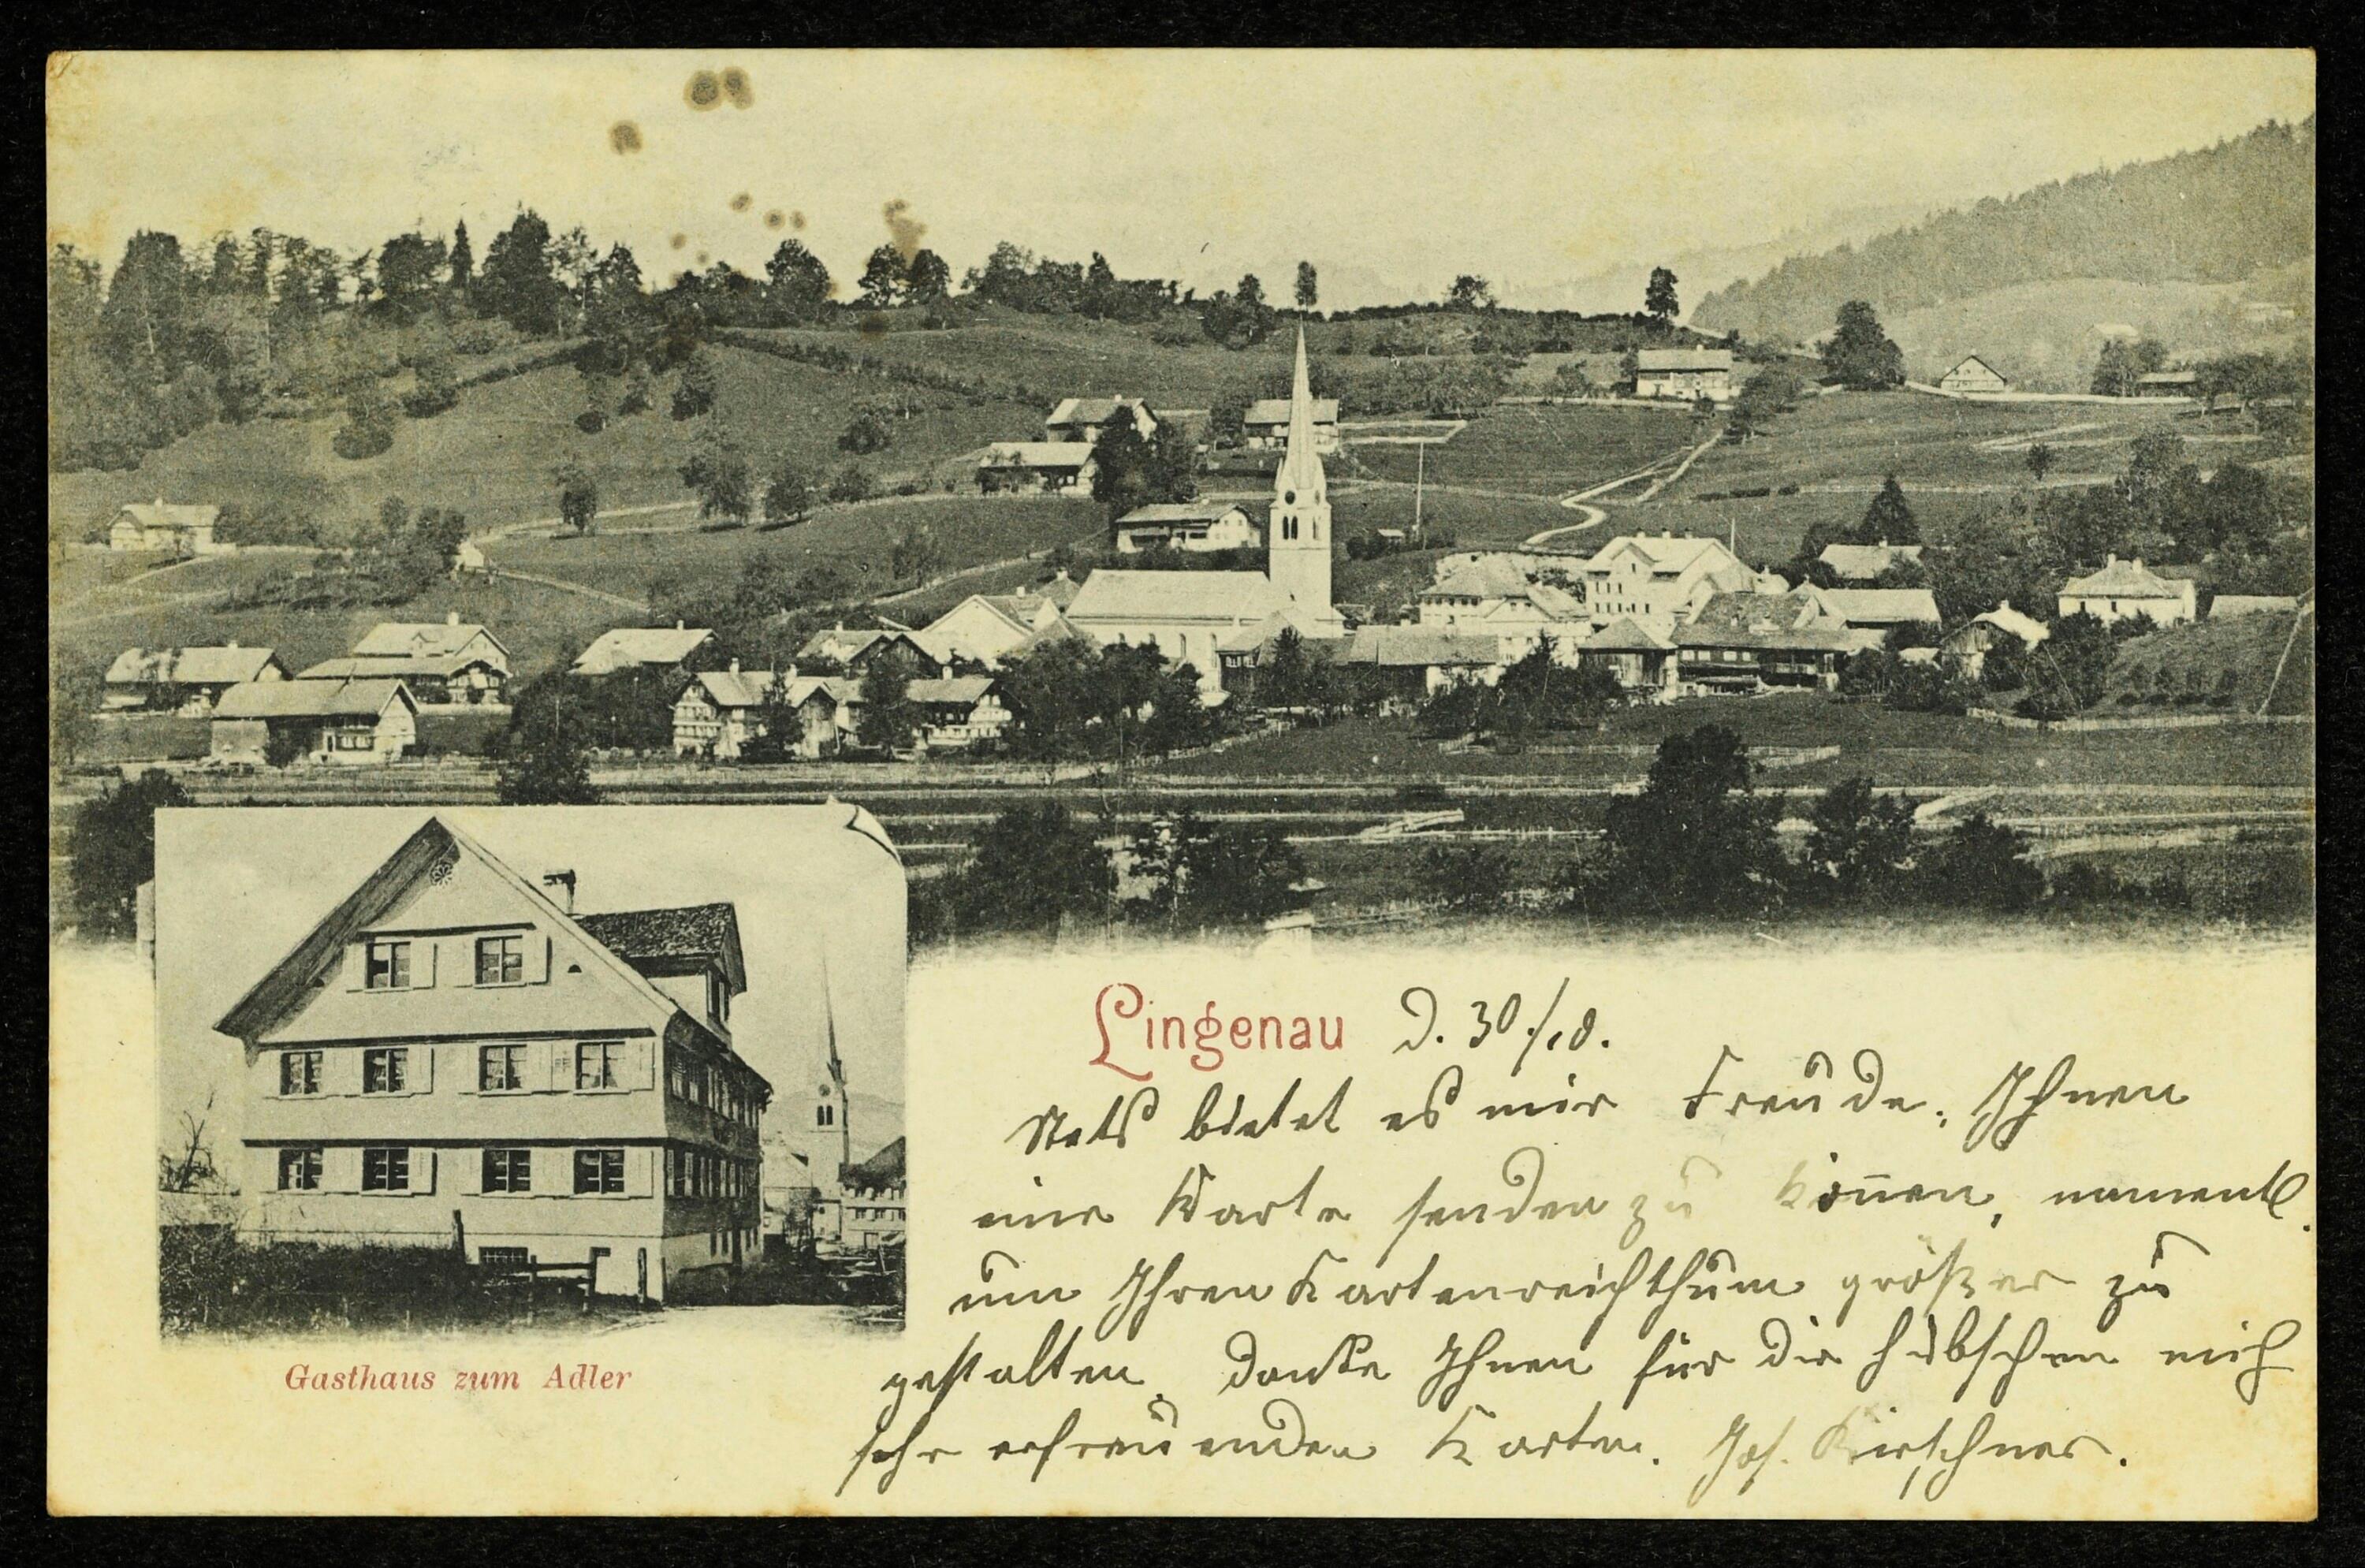 Lingenau d. 30./10.
Stets bietet es mir Freude, Ihnen
eine Karte senden zu können, namentl.
um Ihren Kartenreichthum größer zu
gestalten. Danke Ihnen für die hübschen mich
sehr erfreuenden Karten. Jos. Kirschner.
Gasthaus zum Adler